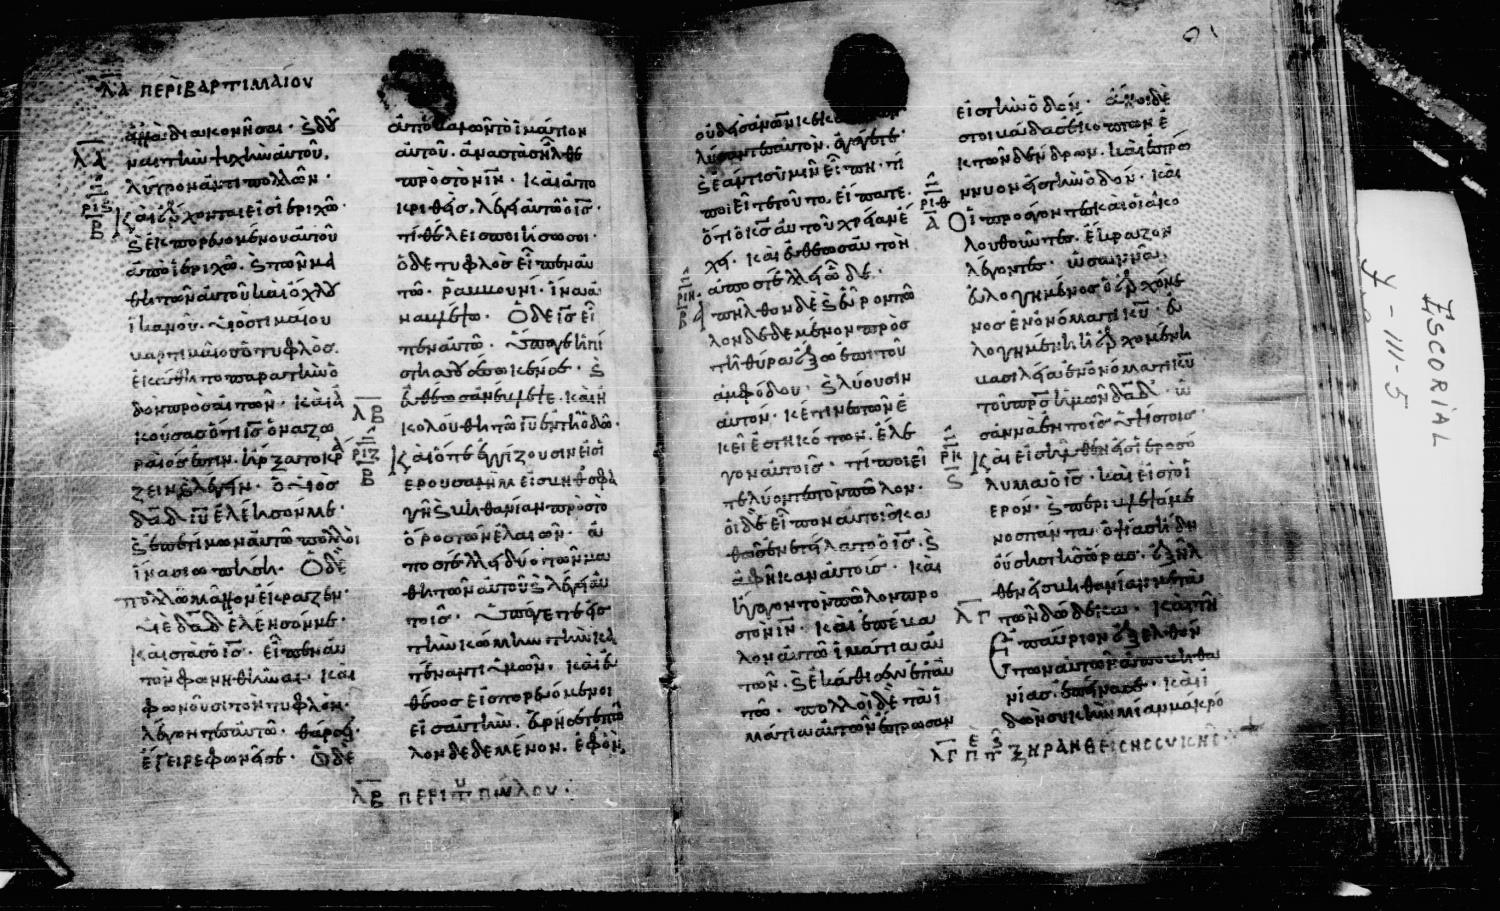 λα περι βαρτιμαιου
ἀλλὰ διακονῆσαι· ϗ δοῦ
λα ναι τὴν ψυχὴν αὐτοῦ,
λύτρον ἀντὶ πολλῶν·
ριϛ β Καὶ ἔρχονται εἰς ἱεριχῶ·
ϗ ἐκπορευομένου αὐτοῦ
ἀπὸ ἱεριχῶ· ϗ τῶν μα
θητῶν αὐτοῦ καὶ ὄχλου
ἱκανοῦ· υἱὸς τιμαίου
βαρτιμαῖος ὁ τυφλὸς
ἐκάθητο παρὰ τὴν ὁ
δὸν προσαιτῶν· καὶ ἀ
κούσας ὅτι ις ὁ ναζω
ραῖός ἐστιν· ἤρξατο κρά
ζειν ϗ λέγειν· ὁ υἱὸς
δαδ ιυ ἐλέησόν με·
ϗ ἐπετίμων αὐτῶ πολλοὶ
ἵνα σιωπήση· Ὁ δὲ
πολλῶ μᾶλλον ἔκραζεν·
υἱὲ δαδ ἐλέησόν με·
καὶ στὰς ὁ ις· εἶπεν αὐ
τὸν φωνηθῆναι· καὶ
φωνοῦσι τὸν τυφλὸν·
λέγοντες αὐτῶ· θάρσει·
ἔγειρε φωνεῖ σε· Ὁ δὲ
ἀποβαλὼν τὸ ἱμάτιον
αὐτοῦ· ἀναστὰς ἦλθε
πρὸς τὸν ιν· καὶ ἀπο
κριθεὶς λέγει αὐτῶ ὁ ις·
τί θέλεις ποιήσω σοι·
ὁ δὲ τυφλὸς εἶπεν αὐ
τῶ· ραββουνί· ἵνα ἀ
ναβλέψω· Ὁ δὲ ις εἶ
πεν αὐτῶ· ὕπαγε ἡ πί
στις σου σέσωκέν σε· ϗ
εὐθέως ἀνέβλεψε· καὶ ἠ
λβ κολούθει τῶ ιυ ἐν τῆ ὁδῶ·
ριζ β Καὶ ὅτε ἐγγίζουσιν εἰς ἱ
ερουσαλὴμ εἰς βηθσφα
γὴ ϗ βηθανίαν πρὸς τὸ
ὄρος τῶν ἐλαιῶν· ἀ
ποστέλλει δύο τῶν μα
θητῶν αὐτοῦ ϗ λέγει αὐ
τοῖς· ὑπάγετε εἰς
τὴν κώμην τὴν κα
τέναντι ὑμῶν· καὶ εὐ
θέως εἰσπορευόμενοι
εἰς αὐτὴν· εὑρήσετε πῶ
λον δεδεμένον· ἐφ᾽ ὃν
λβ περι του πωλου·
οὐδεὶς ἀνῶν κεκ
λύσαντες αὐτὸν· ἀγάγετε·
ϗ ἐάν τις ὑμῖν εἴπη· τί
ποιεῖτε τοῦτο, εἴπατε·
ὅτι ὁ κς αὐτοῦ χρείαν ἔ
χει· καὶ εὐθέως αὐτὸν
ἀποστέλλει ὧδε·
ριη β ἀπῆλθον δὲ ϗ εὗρον πῶ
λον δεδεμένον πρὸς
τὴ θύρα ἔξω ἐπὶ τοῦ
ἀμφόδου· ϗ λύουσιν
αὐτόν· καί τινες τῶν ἐ
κεῖ ἑστηκότων· ἔλε
γον αὐτοῖς· τί ποιεῖ
τε λύοντες τὸν πῶλον·
οἱ δὲ εἶπον αὐτοῖς κα
θὼς ἐνετείλατο ὁ ις· ϗ
ἀφῆκαν αὐτοῖς· καὶ
ἤγαγον τὸν πῶλον πρὸ
ς τὸν ιν· καὶ ἐπέβα
λον αὐτῶ ἱμάτια αὐ
τῶν· ϗ ἐκάθισεν ἐπ᾽ αὐ
τῶ· πολλοὶ δὲ τὰ ἱ
μάτια αὐτῶν ἔστρωσαν
εἰς τὴν ὁδόν· ἄλλοι δὲ
στοιβάδας ἔκοπτον ἐ
κ τῶν δένδρων· καὶ ἐστρώ
ννυον εἰς τὴν ὁδόν· καὶ
ριθ α Οἱ προάγοντες καὶ οἱ ἀκο
λουθοῦντες· ἔκραζον
λέγοντες· ὡσαννὰ,
εὐλογημένος ὁ ἐρχόμε
νος ἐν ὀνόματι κυ· εὐ
λογημένη ἡ ἐρχομένη
βασιλεία ἐν ὀνόματι κυ
τοῦ πρς ἡμῶν δαδ· ὡ
σαννὰ ἐν τοῖς ὑψίστοις·
ρκ ϛ Καὶ εἰσῆλθεν εἰς ἱεροσό
λυμα ὁ ις· καὶ εἰς τὸ ἱ
ερόν· ϗ περιβλεψάμε
νος πάντα· ὀψίας ἤδη
οὔσης τῆς ὥρας· ἐξῆλ
θεν εἰς βηθανίαν μετὰ
λγ τῶν δώδεκα· καὶ τῆ
Ἐπαύριον ἐξελθόν
των αὐτῶν ἀπὸ βηθα
νίας· ἐπείνασε· καὶ ἰ
δὼν συκῆν μίαν μακρό
λγ περι της ξηρανθεισης συκης·